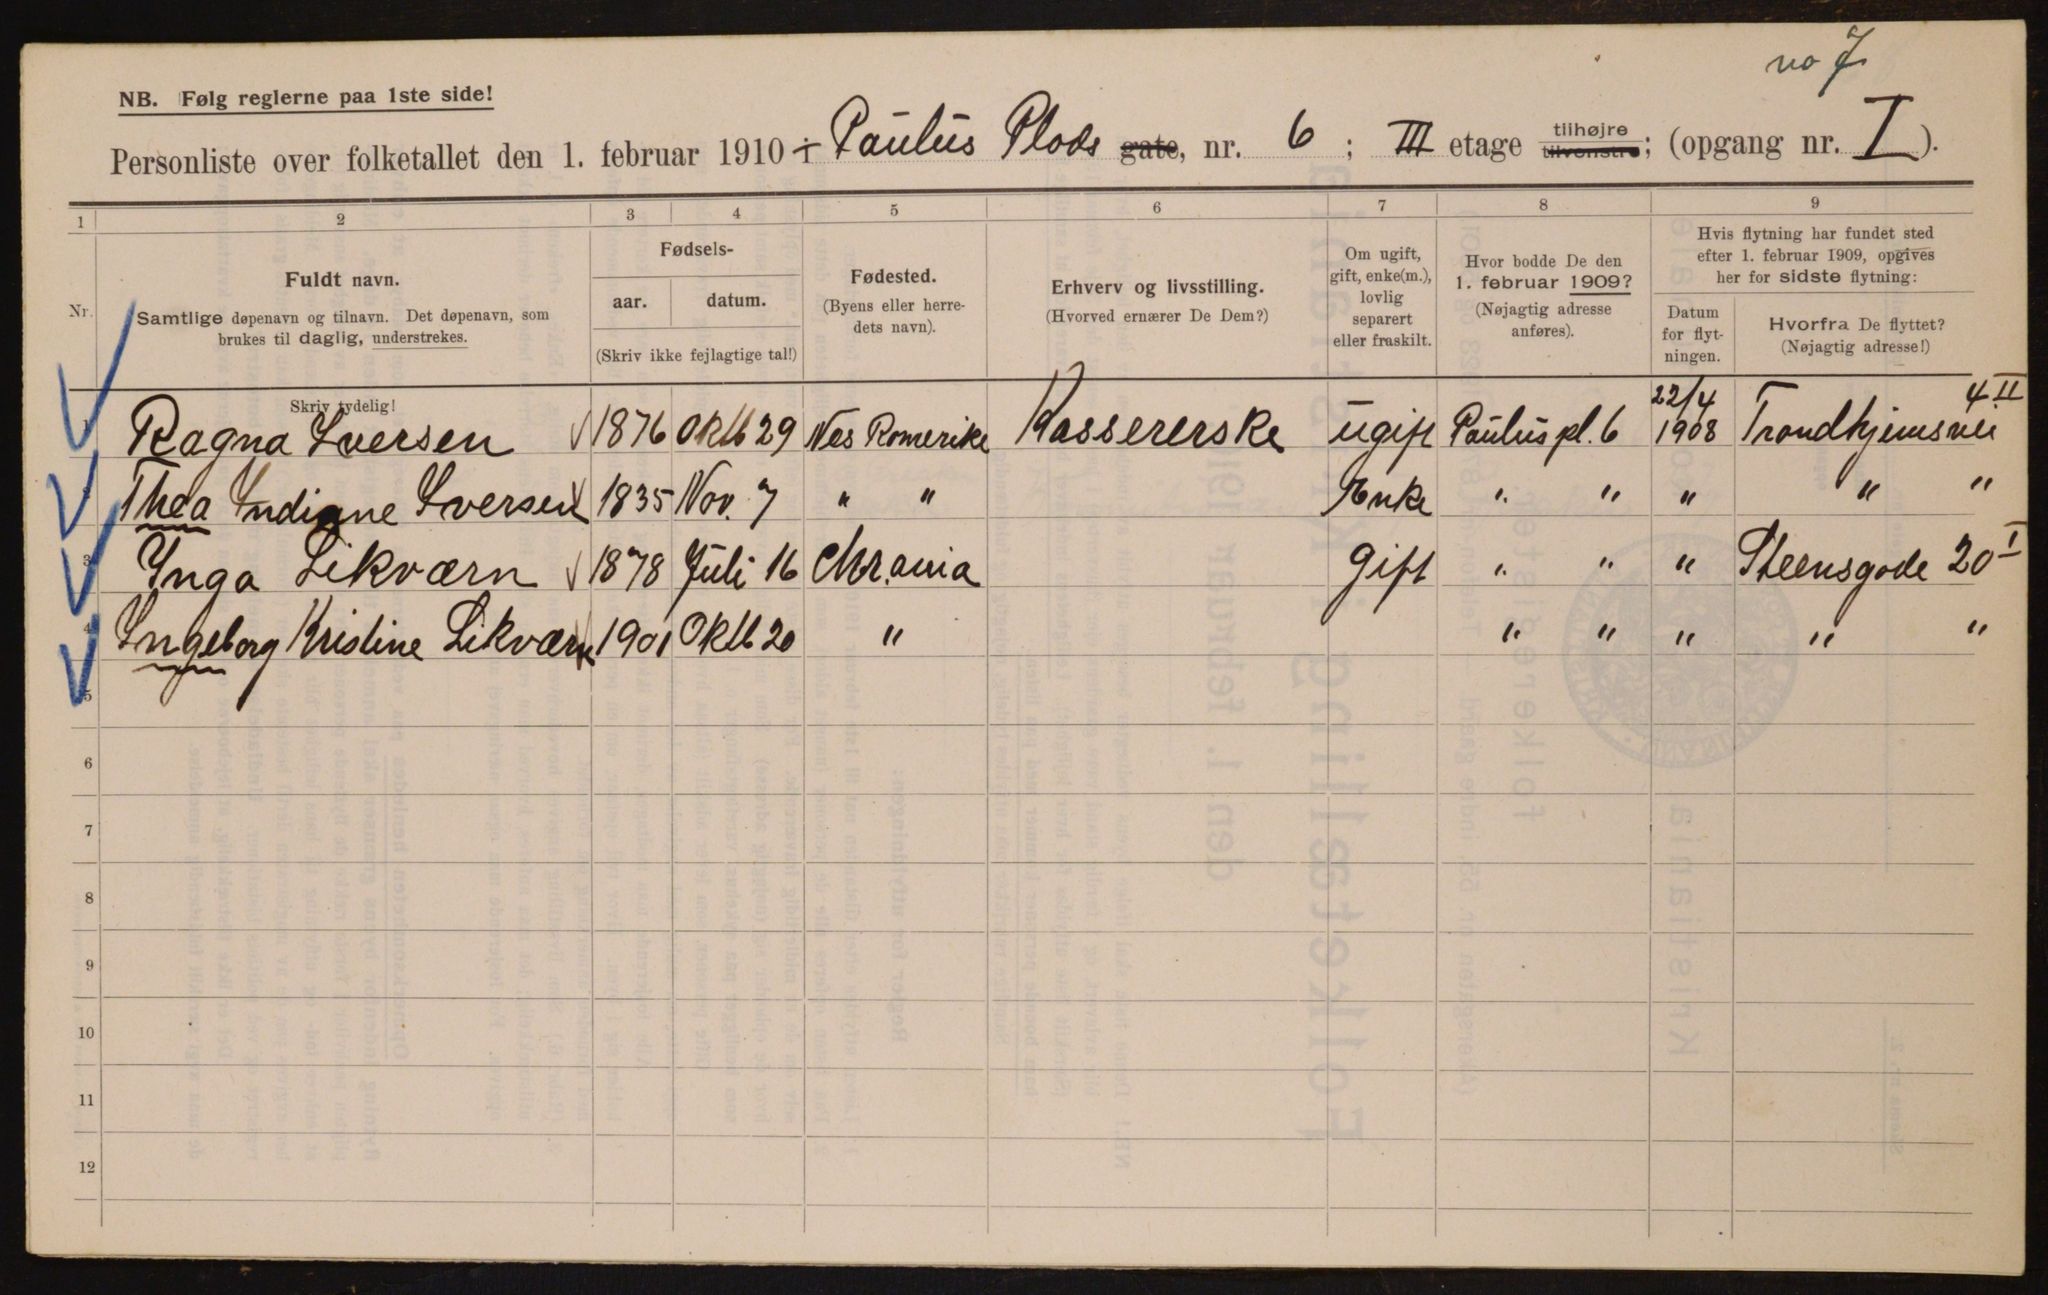 no 7
NB. Følg reglerne paa 1ste side!
Personliste over folketallet den 1. februar 1910 i Paulus Plads gate, nr. 6 ; III etage tilhøjre tilvenstre; (opgang nr. I ).
1 2 3 4 5 6 7 8 9
Nr.
Fuldt navn.
Samtlige døpenavn og tilnavn. Det døpenavn, som
brukes til daglig, understrekes.
Skriv tydelig!
Fødsels-
aar. datum.
(Skriv ikke fejlagtige tal!)
Fødested.
(Byens eller herre-
dets navn).
Erhverv og livsstilling.
(Hvorved ernærer De Dem?)
Om ugift,
gift, enke(m.),
lovlig
separert
eller fraskilt.
Hvor bodde De den
1. februar 1909?
(Nøjagtig adresse
anføres).
Hvis flytning har fundet sted
efter 1. februar 1909, opgives
her for sidste flytning:
Datum
for flyt-
ningen.
Hvorfra De flyttet?
(Nøjagtig adresse!)
1 Ragna Iversen 1876 Oktb 29 Nes Romerike Kassererske ugift Paulus pl. 6 22/4 1908 Trondhjemsvei 4 II
2 Thea Indiane Iversen 1835 Nov. 7 " " Enke " " " " "
3 Inga Likværn 1878 Juli 16 Chr.ania Gift " " " Steensgade 20 I
4 Ingeborg Kristine Likværn 1901 Oktb 20 " " " " " "
5
6
7
8
9
10
11
12